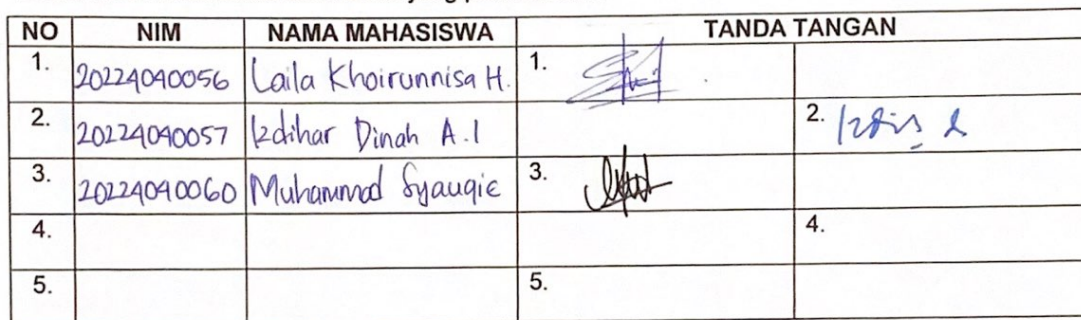 NO NIM NAMA MAHASISWA TANDA TANGAN
1. 20224040056 Laila Khoirunnisa H. 1.
2. 20224040057 Izdihar Dinah A.I 2.
3. 20224040060 Muhammad Syauqie 3.
4. 4.
5. 5.